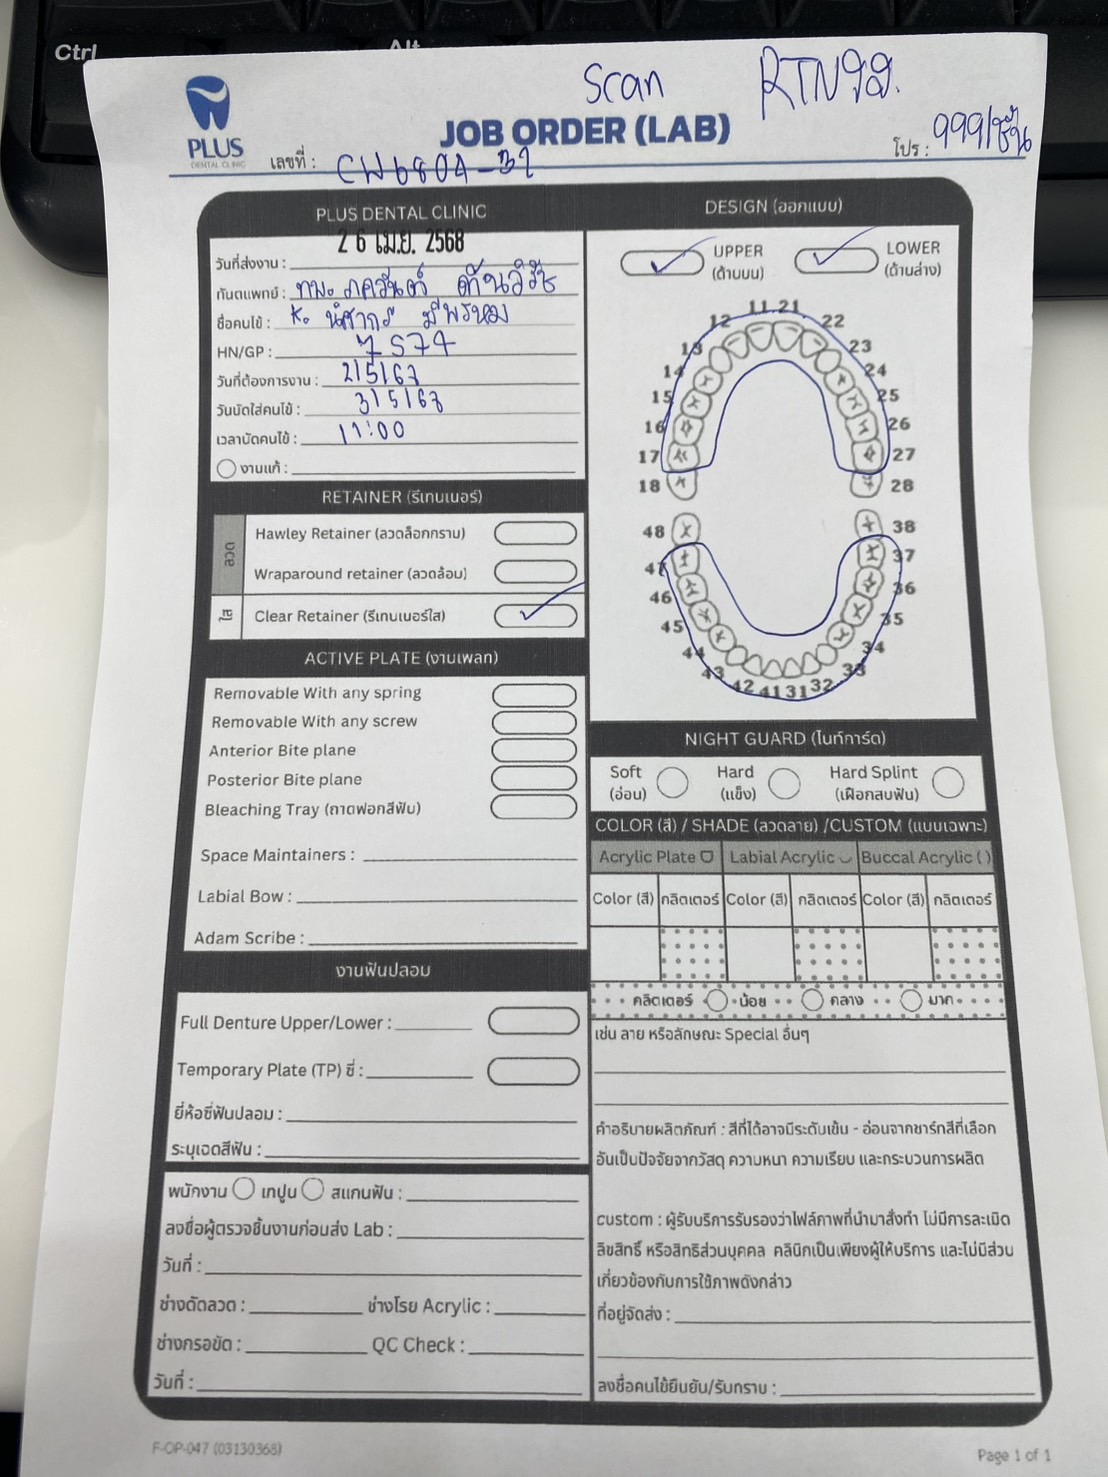 Ctrl
Alt
Scan
PLUS
DENTAL CLINIC
JOB ORDER (LAB)
โปร : 999/ชิ้น
เลขที่ : CW6804-32
PLUS DENTAL CLINIC
วันที่ส่งงาน : 26 เม.ย. 2568
ทันตแพทย์ : ทพ.
ชื่อคนไข้ : K.
HN/GP : 7574
วันที่ต้องการงาน : 2/5/68
วันนัดใส่คนไข้ : 3/5/68
เวลานัดคนไข้ : 11:00
งานแก้ :
RETAINER (รีเทนเนอร์)
ลวด
Hawley Retainer (ลวดล็อกกราม)
Wraparound retainer (ลวดล้อม)
ใส
Clear Retainer (รีเทนเนอร์ใส)
ACTIVE PLATE (งานเพลท)
Removable With any spring
Removable With any screw
Anterior Bite plane
Posterior Bite plane
Bleaching Tray (ถาดฟอกสีฟัน)
Space Maintainers :
Labial Bow :
Adam Scribe :
งานฟันปลอม
Full Denture Upper/Lower :
Temporary Plate (TP) ซี่ :
ยี่ห้อซี่ฟันปลอม :
ระบุเฉดสีฟัน :
พนักงาน เทปูน สแกนฟัน :
ลงชื่อผู้ตรวจชิ้นงานก่อนส่ง Lab :
วันที่ :
ช่างดัดลวด : ช่างโรย Acrylic :
ช่างกรอขัด : QC Check :
วันที่ :
DESIGN (ออกแบบ)
UPPER
(ด้านบน)
LOWER
(ด้านล่าง)
11 21
12 22
13 23
14 24
15 25
16 26
17 27
18 28
48 38
47 37
46 36
45 35
44 34
43 33
42 41 31 32
NIGHT GUARD (ไนท์การ์ด)
Soft
(อ่อน)
Hard
(แข็ง)
Hard Splint
(เฝือกสบฟัน)
COLOR (สี) / SHADE (ลวดลาย) /CUSTOM (แบบเฉพาะ)
Acrylic Plate Labial Acrylic Buccal Acrylic ( )
Color (สี) กลิตเตอร์ Color (สี) กลิตเตอร์ Color (สี) กลิตเตอร์
กลิตเตอร์ น้อย กลาง มาก
เช่น ลาย หรือลักษณะ Special อื่นๆ
คำอธิบายผลิตภัณฑ์ : สีที่ได้อาจมีระดับเข้ม - อ่อนจากชาร์ทสีที่เลือก
อันเป็นปัจจัยจากวัสดุ ความหนา ความเรียบ และกระบวนการผลิต
custom : ผู้รับบริการรับรองว่าไฟล์ภาพที่นำมาสั่งทำ ไม่มีการละเมิด
ลิขสิทธิ์ หรือสิทธิส่วนบุคคล คลินิกเป็นเพียงผู้ให้บริการ และไม่มีส่วน
เกี่ยวข้องกับการใช้ภาพดังกล่าว
ที่อยู่จัดส่ง :
ลงชื่อคนไข้ยืนยัน/รับทราบ :
F-OP-047 (03130368)
Page 1 of 1